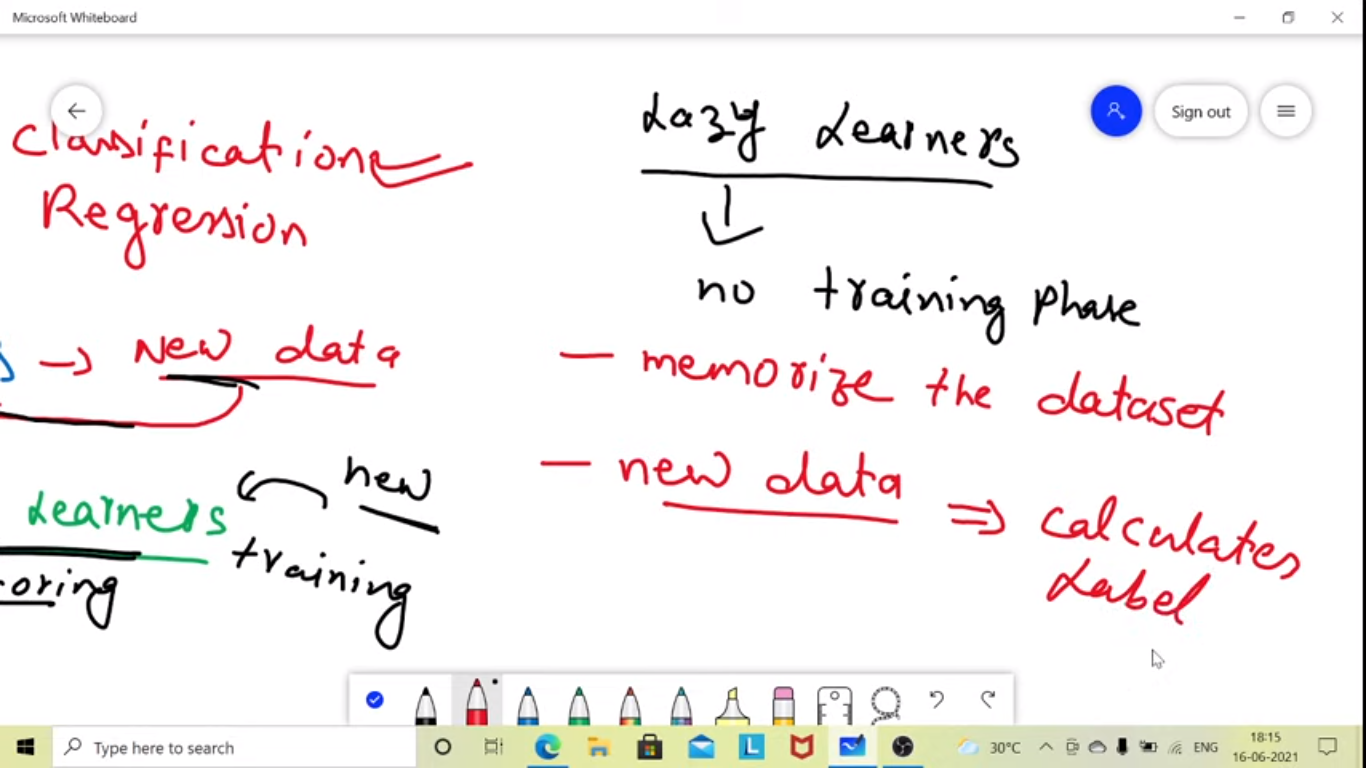 Microsoft Whiteboard
Sign out
Classification
Regression
New data
Learners
new
training
oring
Lazy Learners
no training phase
— memorize the dataset
— new data ⇒ calculates
Label
Type here to search
30°C
ENG
18:15
16-06-2021